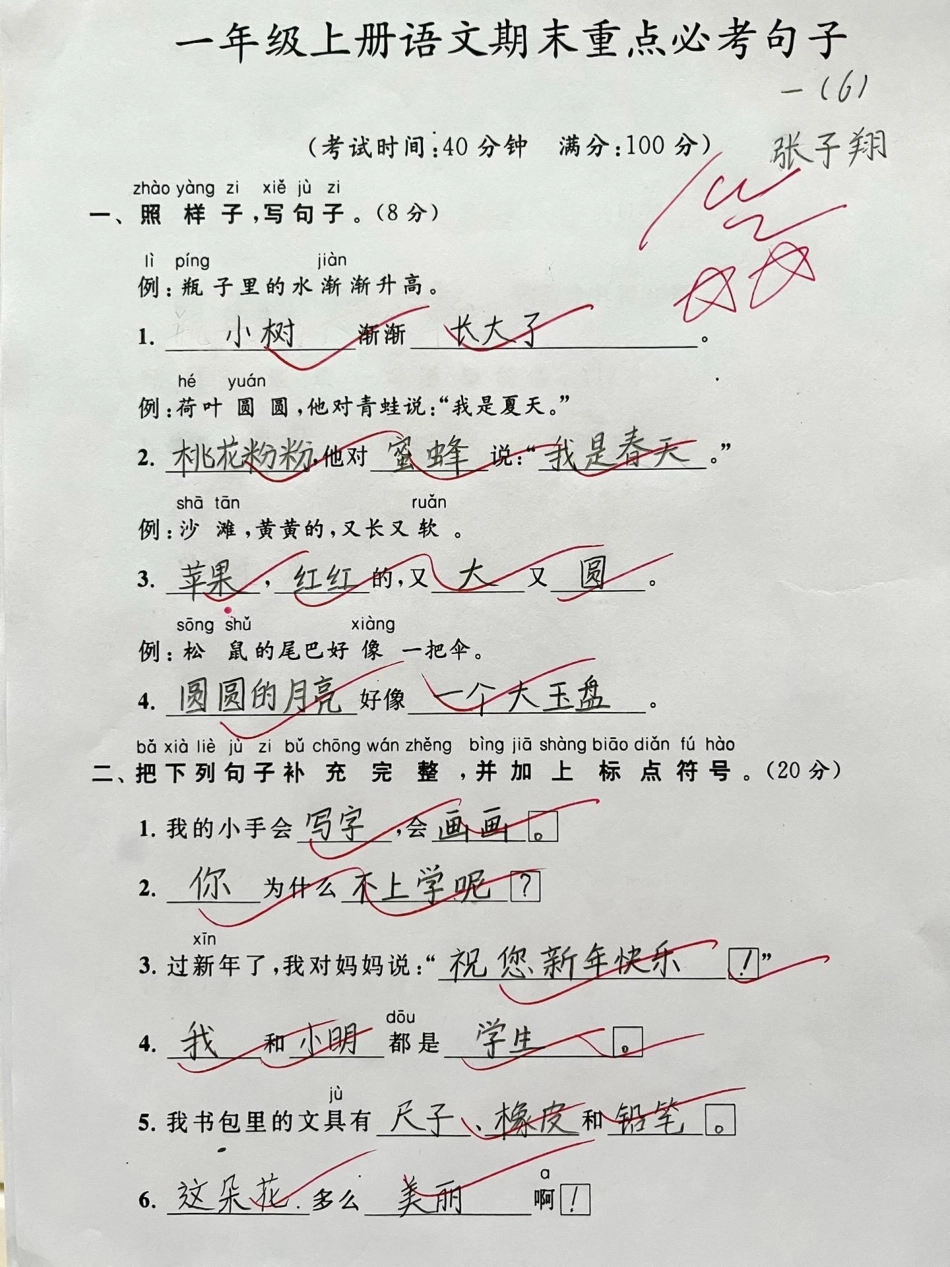 一年级上册语文期末重点必考句子
一(6)
(考试时间:40分钟 满分:100分)
张子翔
zhào yàng zi xiě jù zi
一、照样子,写句子。(8分)
lì píng jiàn
例:瓶子里的水渐渐升高。
1. 小树渐渐长大了。
hé yuán
例:荷叶圆圆,他对青蛙说:“我是夏天。”
2. 桃花粉粉,他对蜜蜂说:“我是春天。”
shā tān ruǎn
例:沙滩,黄黄的,又长又软。
3. 苹果,红红的,又大又圆。
sōng shǔ xiàng
例:松鼠的尾巴好像一把伞。
4. 圆圆的月亮好像一个大玉盘。
bǎ xià liè jù zi bǔ chōng wán zhěng bìng jiā shàng biāo diǎn fú hào
二、把下列句子补充完整,并加上标点符号。(20分)
1. 我的小手会写字,会画画。
2. 你为什么不上学呢?
xīn
3. 过新年了,我对妈妈说:“祝您新年快乐!”
dōu
4. 我和小明都是学生。
jù
5. 我书包里的文具有尺子、橡皮和铅笔。
a
6. 这朵花多么美丽啊!